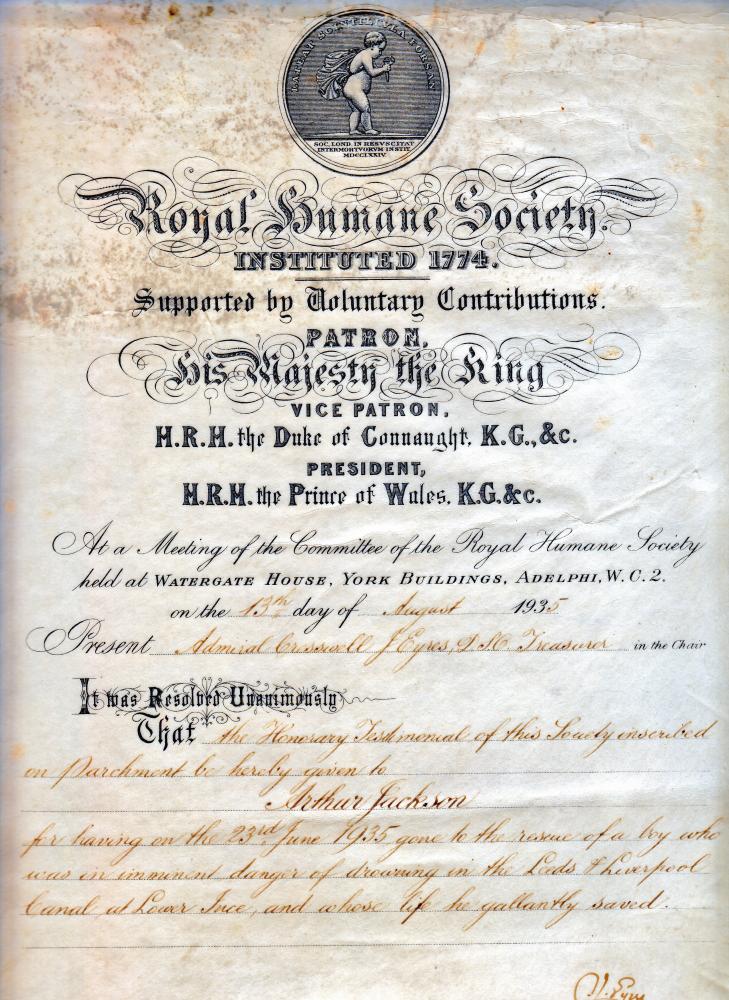 LATEAT SCINTILLVLA FORSAN
SOC. LOND. IN RESVSCITAT
INTERMORTVORVM INSTIT.
MDCCLXXIV.
Royal Humane Society.
INSTITUTED 1774.
Supported by Voluntary Contributions.
PATRON,
His Majesty the King
VICE PATRON,
H.R.H. the Duke of Connaught, K.G., &c.
PRESIDENT,
H.R.H. the Prince of Wales, K.G. &c.
At a Meeting of the Committee of the Royal Humane Society
held at WATERGATE HOUSE, YORK BUILDINGS, ADELPHI, W.C.2.
on the 13th day of August 1935
Present Admiral Cresswell J Eyres, D.S.O. Treasurer in the Chair
It was Resolved Unanimously
That the Honorary Testimonial of this Society inscribed
on Parchment be hereby given to
Arthur Jackson
for having on the 23rd June 1935 gone to the rescue of a boy who
was in imminent danger of drowning in the Leeds & Liverpool
Canal at Lower Ince, and whose life he gallantly saved.